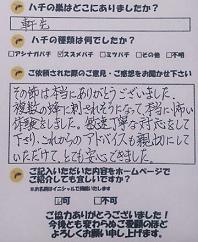 ハチの巣はどこにありましたか?
軒先
ハチの種類は何でしたか?
□アシナガバチ ☑スズメバチ □ミツバチ □その他 □不明
ご依頼された際のご意見・ご感想をお聞かせ下さい
その節は本当にありがとうございました。
複数の蜂に刺されそうになって本当に怖い
体験をしました。敏速丁寧な対応をして
下さり、これからのアドバイスも親切にして
いただけて、とても安心できました。
ご記入いただいた内容をホームページで
ご紹介しても宜しいですか?
※お名前はイニシャルで掲載いたします
☑可 □不可
ご協力ありがとうございました!
今後とも変わらぬご愛顧のほど
よろしくお願い申し上げます。